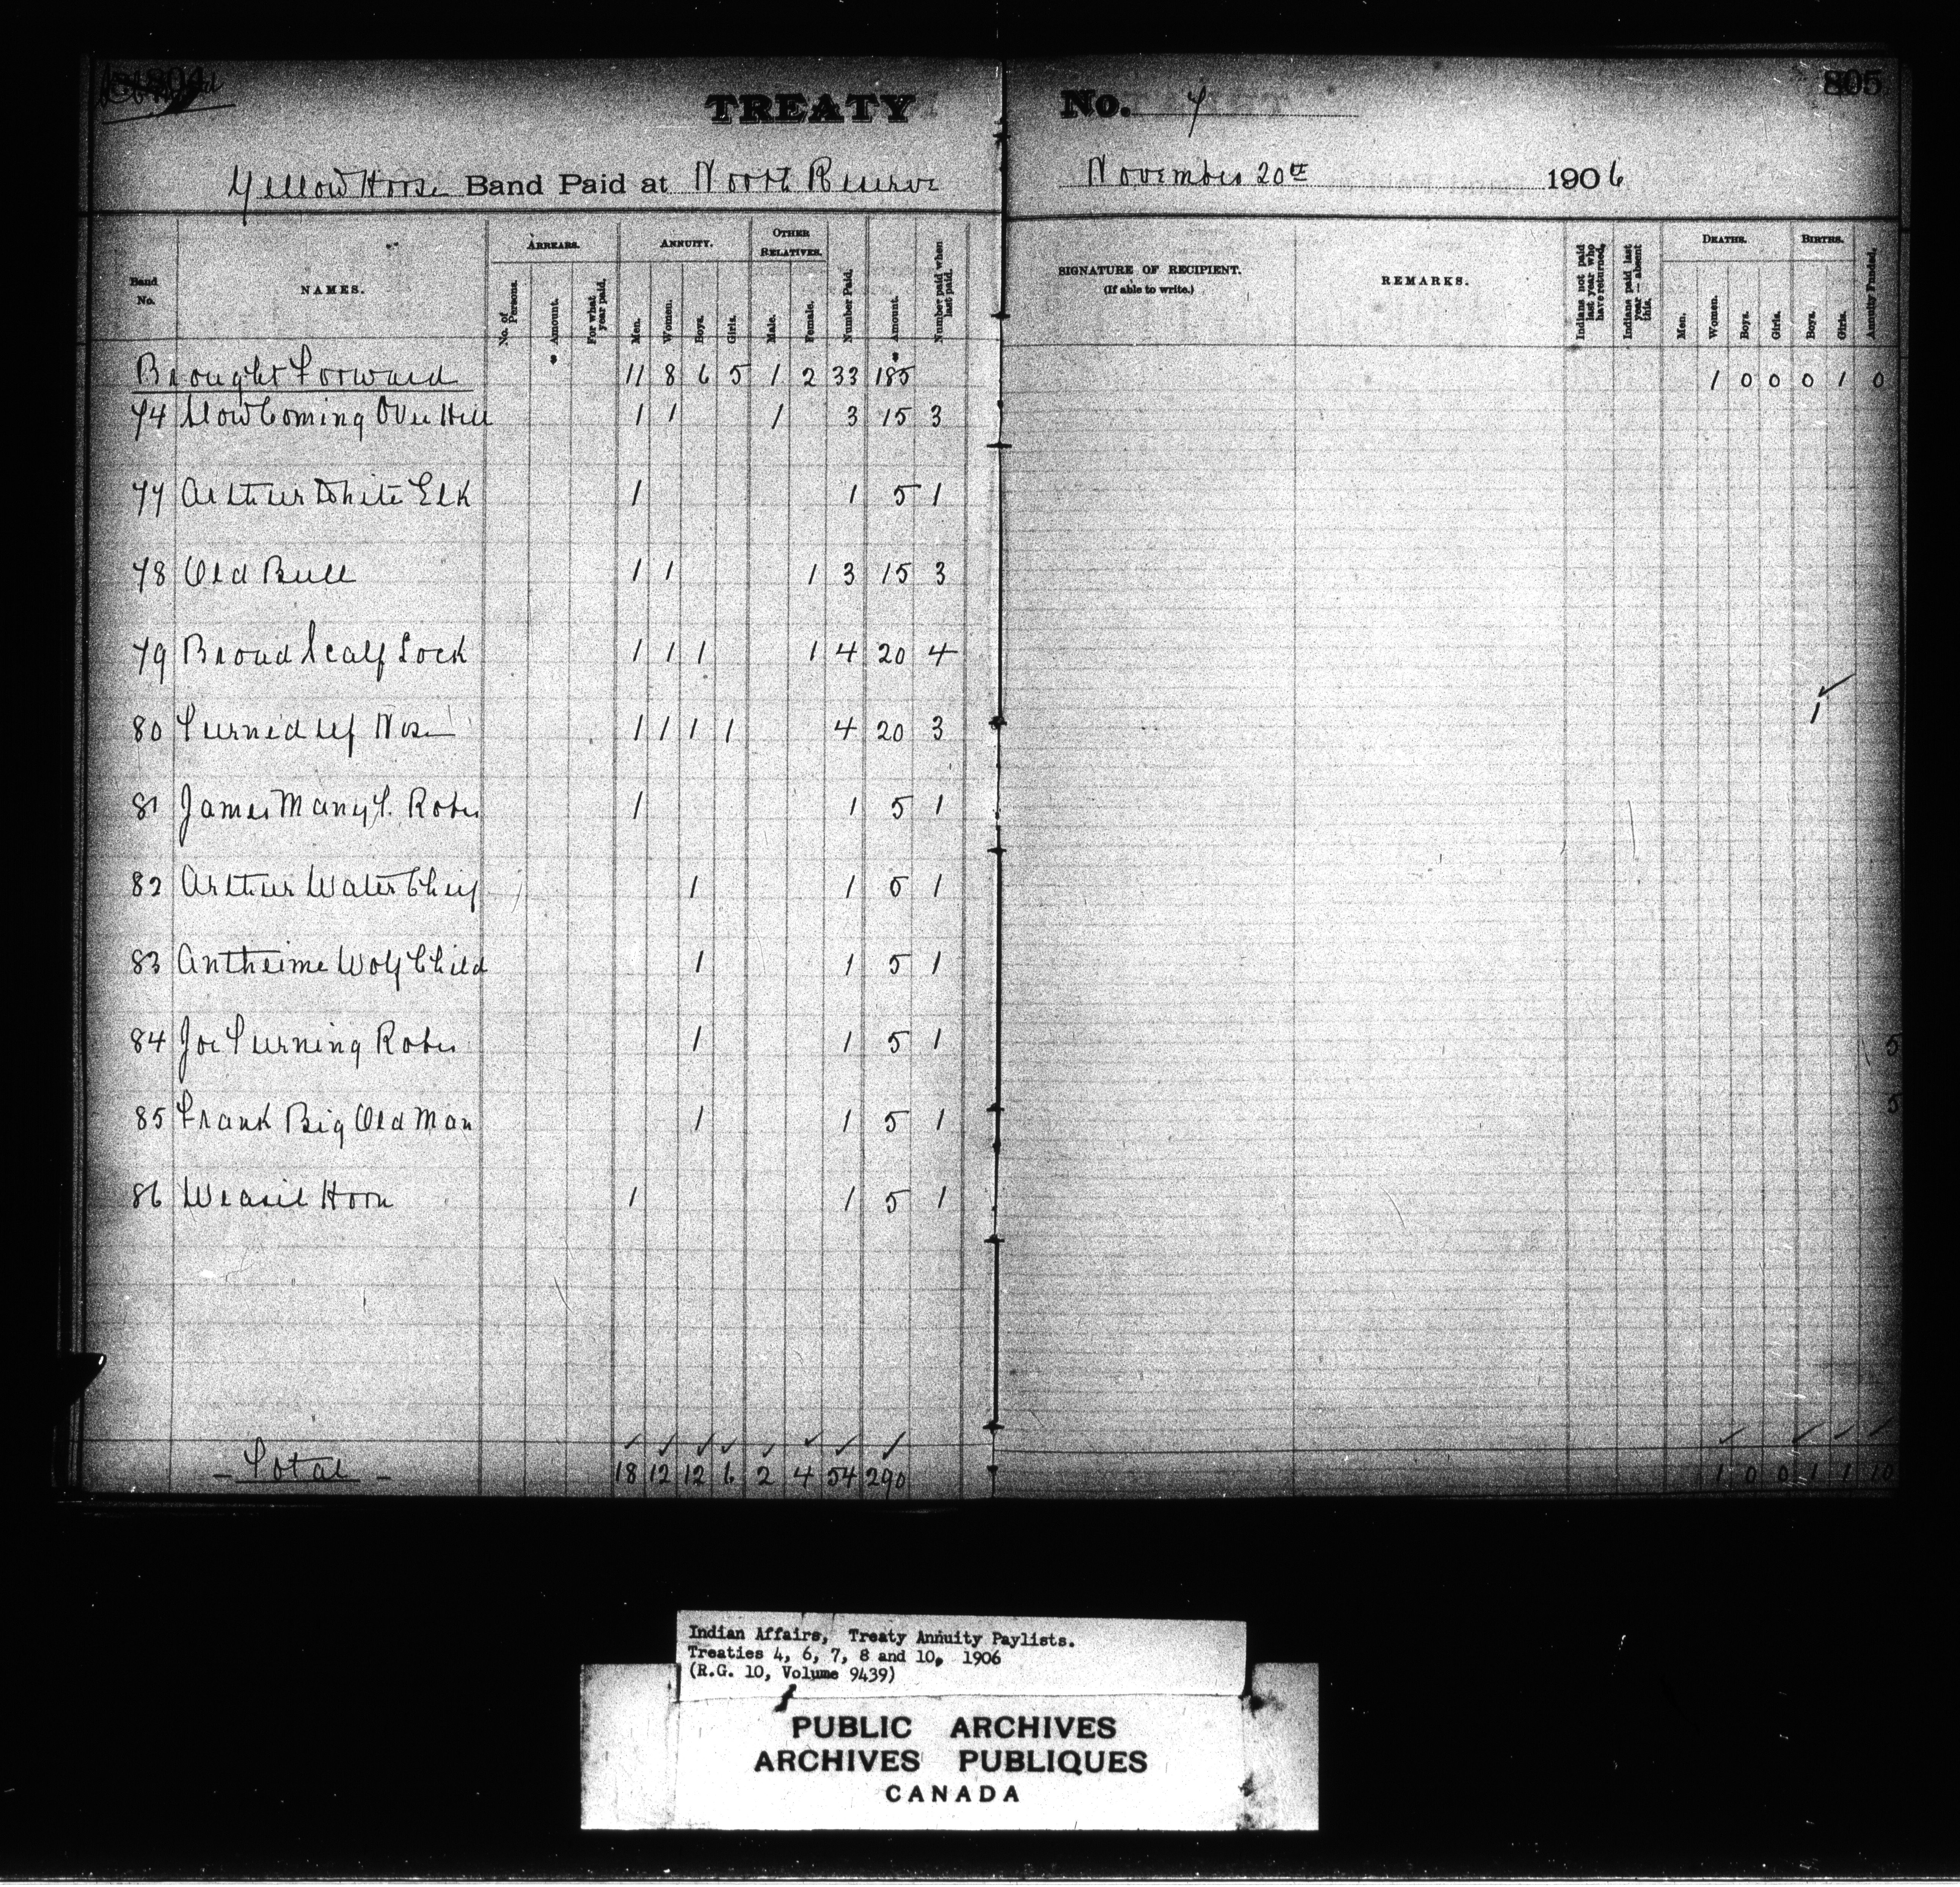 804
805
TREATY No. 7
Yellow Horse Band Paid at North Reserve November 20th 1906
Band No. NAMES. ARREARS. No. of Persons. Amount. For what year paid. ANNUITY. Men. Women. Boys. Girls. OTHER RELATIVES. Male. Female. Number Paid. Amount. Number paid when last paid. SIGNATURE OF RECIPIENT. (If able to write.) REMARKS. Indians not paid last year who have returned. Indians paid last year — absent this. DEATHS. Men. Women. Boys. Girls. BIRTHS. Boys. Girls. Annuity Funded.
Brought Forward 11 8 6 5 1 2 33 185 1 0 0 0 1 0
74 Slow Coming Over Hill 1 1 1 3 15 3
77 Arthur White Elk 1 1 5 1
78 Old Bull 1 1 1 3 15 3
79 Broad Scalp Lock 1 1 1 1 4 20 4
80 Turned up Nose 1 1 1 1 4 20 3 1
81 James Many T. Robes 1 1 5 1
82 Arthur Water Chief 1 1 5 1
83 Antheime Wolf Child 1 1 5 1
84 Joe Turning Robes 1 1 5 1 5
85 Frank Big Old Man 1 1 5 1 5
86 Weasil Horn 1 1 5 1
- Total - 18 12 12 6 2 4 54 290 1 0 0 1 1 10
Indian Affairs, Treaty Annuity Paylists.
Treaties 4, 6, 7, 8 and 10, 1906
(R.G. 10, Volume 9439)
PUBLIC ARCHIVES
ARCHIVES PUBLIQUES
CANADA